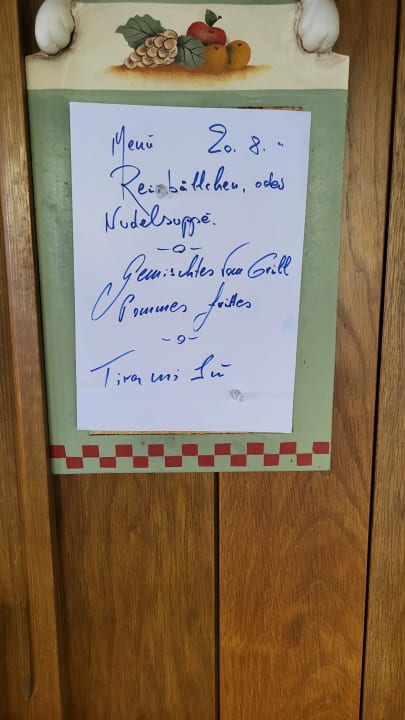 Menü 20. 8. -
Reisbällchen, oder
Nudelsuppe.
-o-
Gemischtes vom Grill
Pommes frittes
-o-
Tira mi Sú